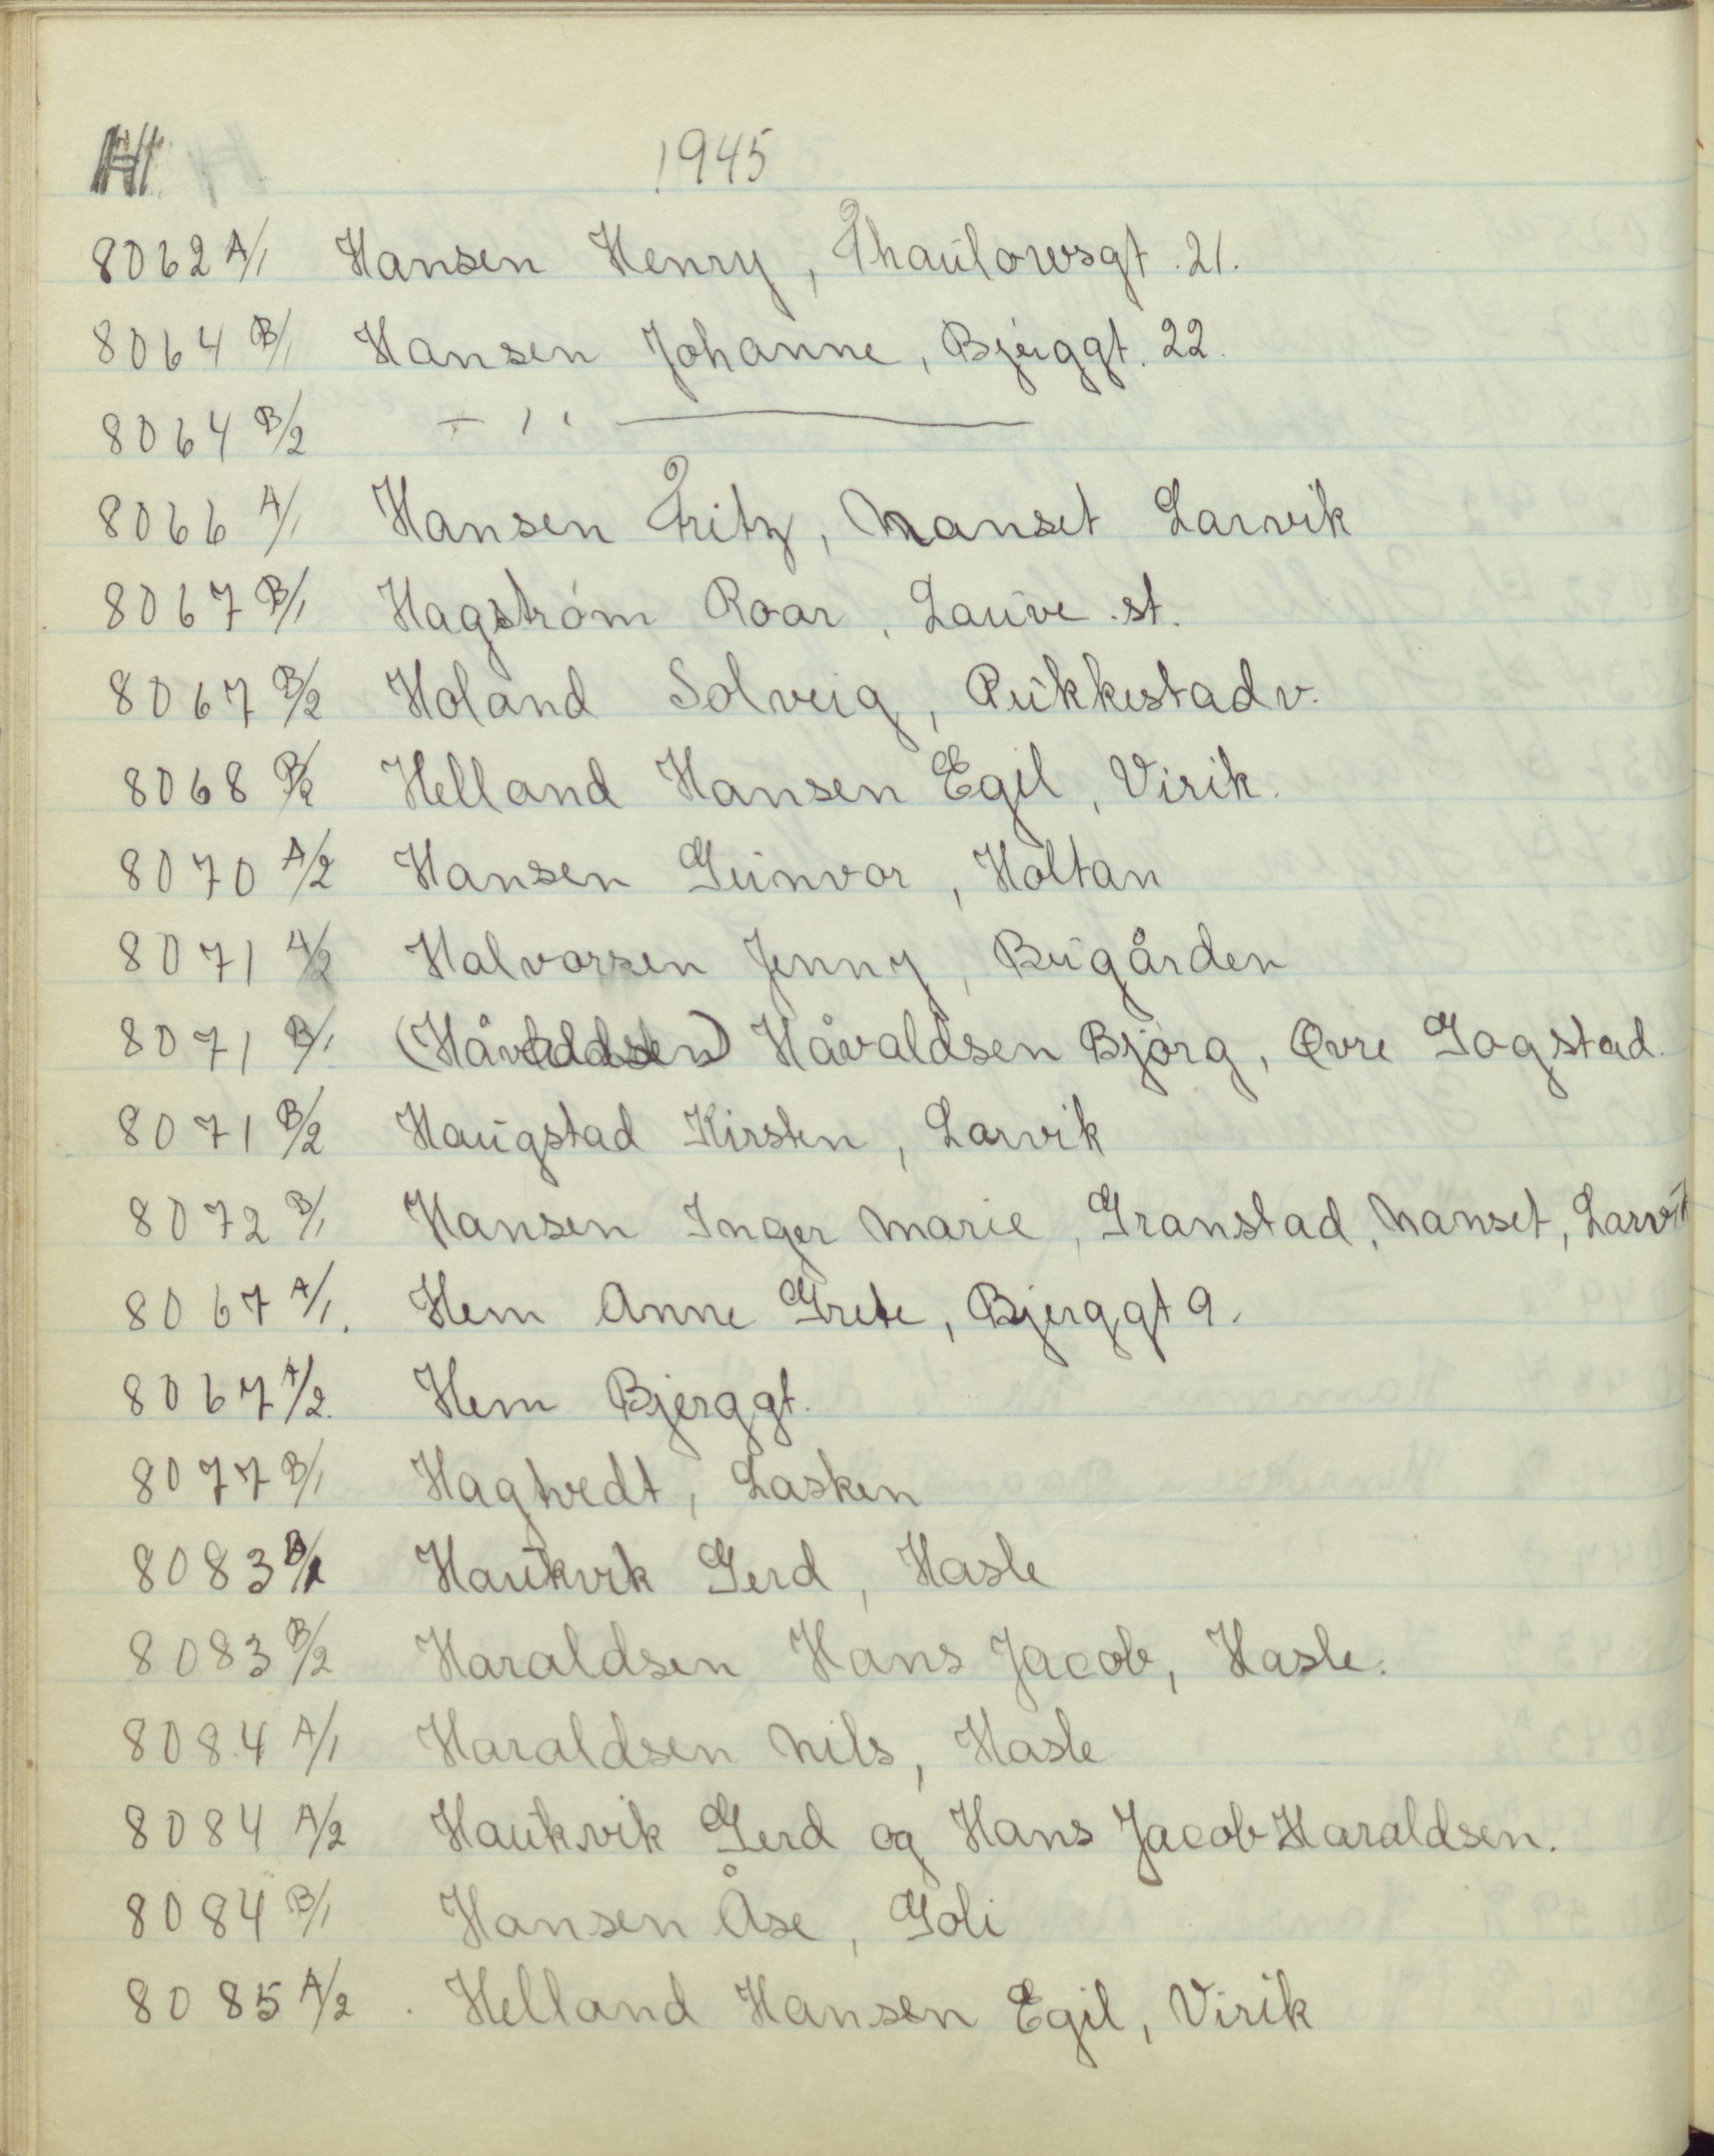 H 1945
8062 A/1 Hansen Henry, Thaulowsgt. 21.
8064 B/1 Hansen Johanne, Bjerggt. 22.
8064 B/2 — ,, ———
8066 A/1 Hansen Fritz, Nanset Larvik
8067 B/1 Hagstrøm Roar, Lauve st.
8067 B/2 Holand Solveig, Pukkestadv.
8068 B/2 Helland Hansen Egil, Virik.
8070 A/2 Hansen Gunvor, Holtan
8071 A/2 Halvorsen Jenny, Bugården
8071 B/1 (Håvaldsen) Håvaldsen Bjørg, Øvre Gogstad.
8071 B/2 Haugstad Kirsten, Larvik
8072 B/1 Hansen Inger Marie, Granstad, Nanset, Larvik
8067 A/1. Hem Anne Grete, Bjerggt 9.
8067 A/2. Hem Bjerggt.
8077 B/1 Hagtvedt, Lasken
8083 B/1 Haukvik Gerd, Hasle
8083 B/2 Haraldsen Hans Jacob, Hasle.
8084 A/1 Haraldsen Nils, Hasle
8084 A/2 Haukvik Gerd og Hans Jacob Haraldsen.
8084 B/1 Hansen Åse, Goli
8085 A/2 . Helland Hansen Egil, Virik